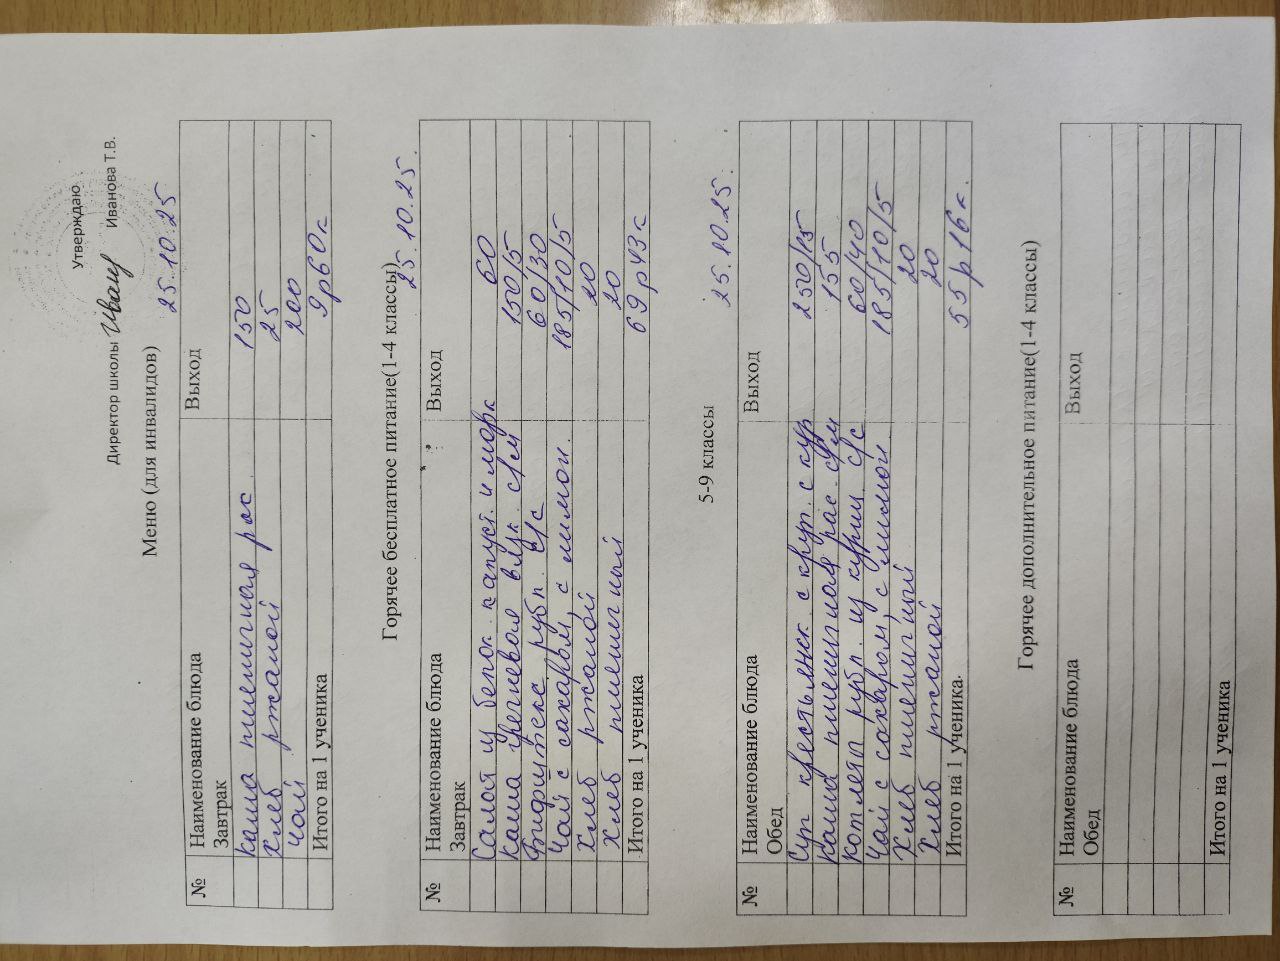 Утверждаю
Директор школы Иванова Т.В.
25.10.25
Меню (для инвалидов)
№ Наименование блюда Выход
Завтрак
каша пшеничная рас 150
хлеб ржаной 25
чай 200
Итого на 1 ученика 9р60к
Горячее бесплатное питание(1-4 классы) 25.10.25.
№ Наименование блюда Выход
Завтрак
Салат из белок. капуст. и морк 60
каша гречневая вязк. с/м 150/5
Бифштекс рубл. с/с 60/30
Чай с сахаром, с лимон. 185/10/5
хлеб ржаной 20
хлеб пшеничный 20
Итого на 1 ученика 69р43к
5-9 классы 25.10.25.
№ Наименование блюда Выход
Обед
Суп крестьянск с круп. с кур 250/15
каша пшеничная рас. с/м 155
котлеты рубл. из куриц с/с 60/40
Чай с сахаром, с лимон 185/10/5
Хлеб пшеничный 20
Хлеб ржаной 20
Итого на 1 ученика. 55р16к.
Горячее дополнительное питание(1-4 классы)
№ Наименование блюда Выход
Обед
Итого на 1 ученика